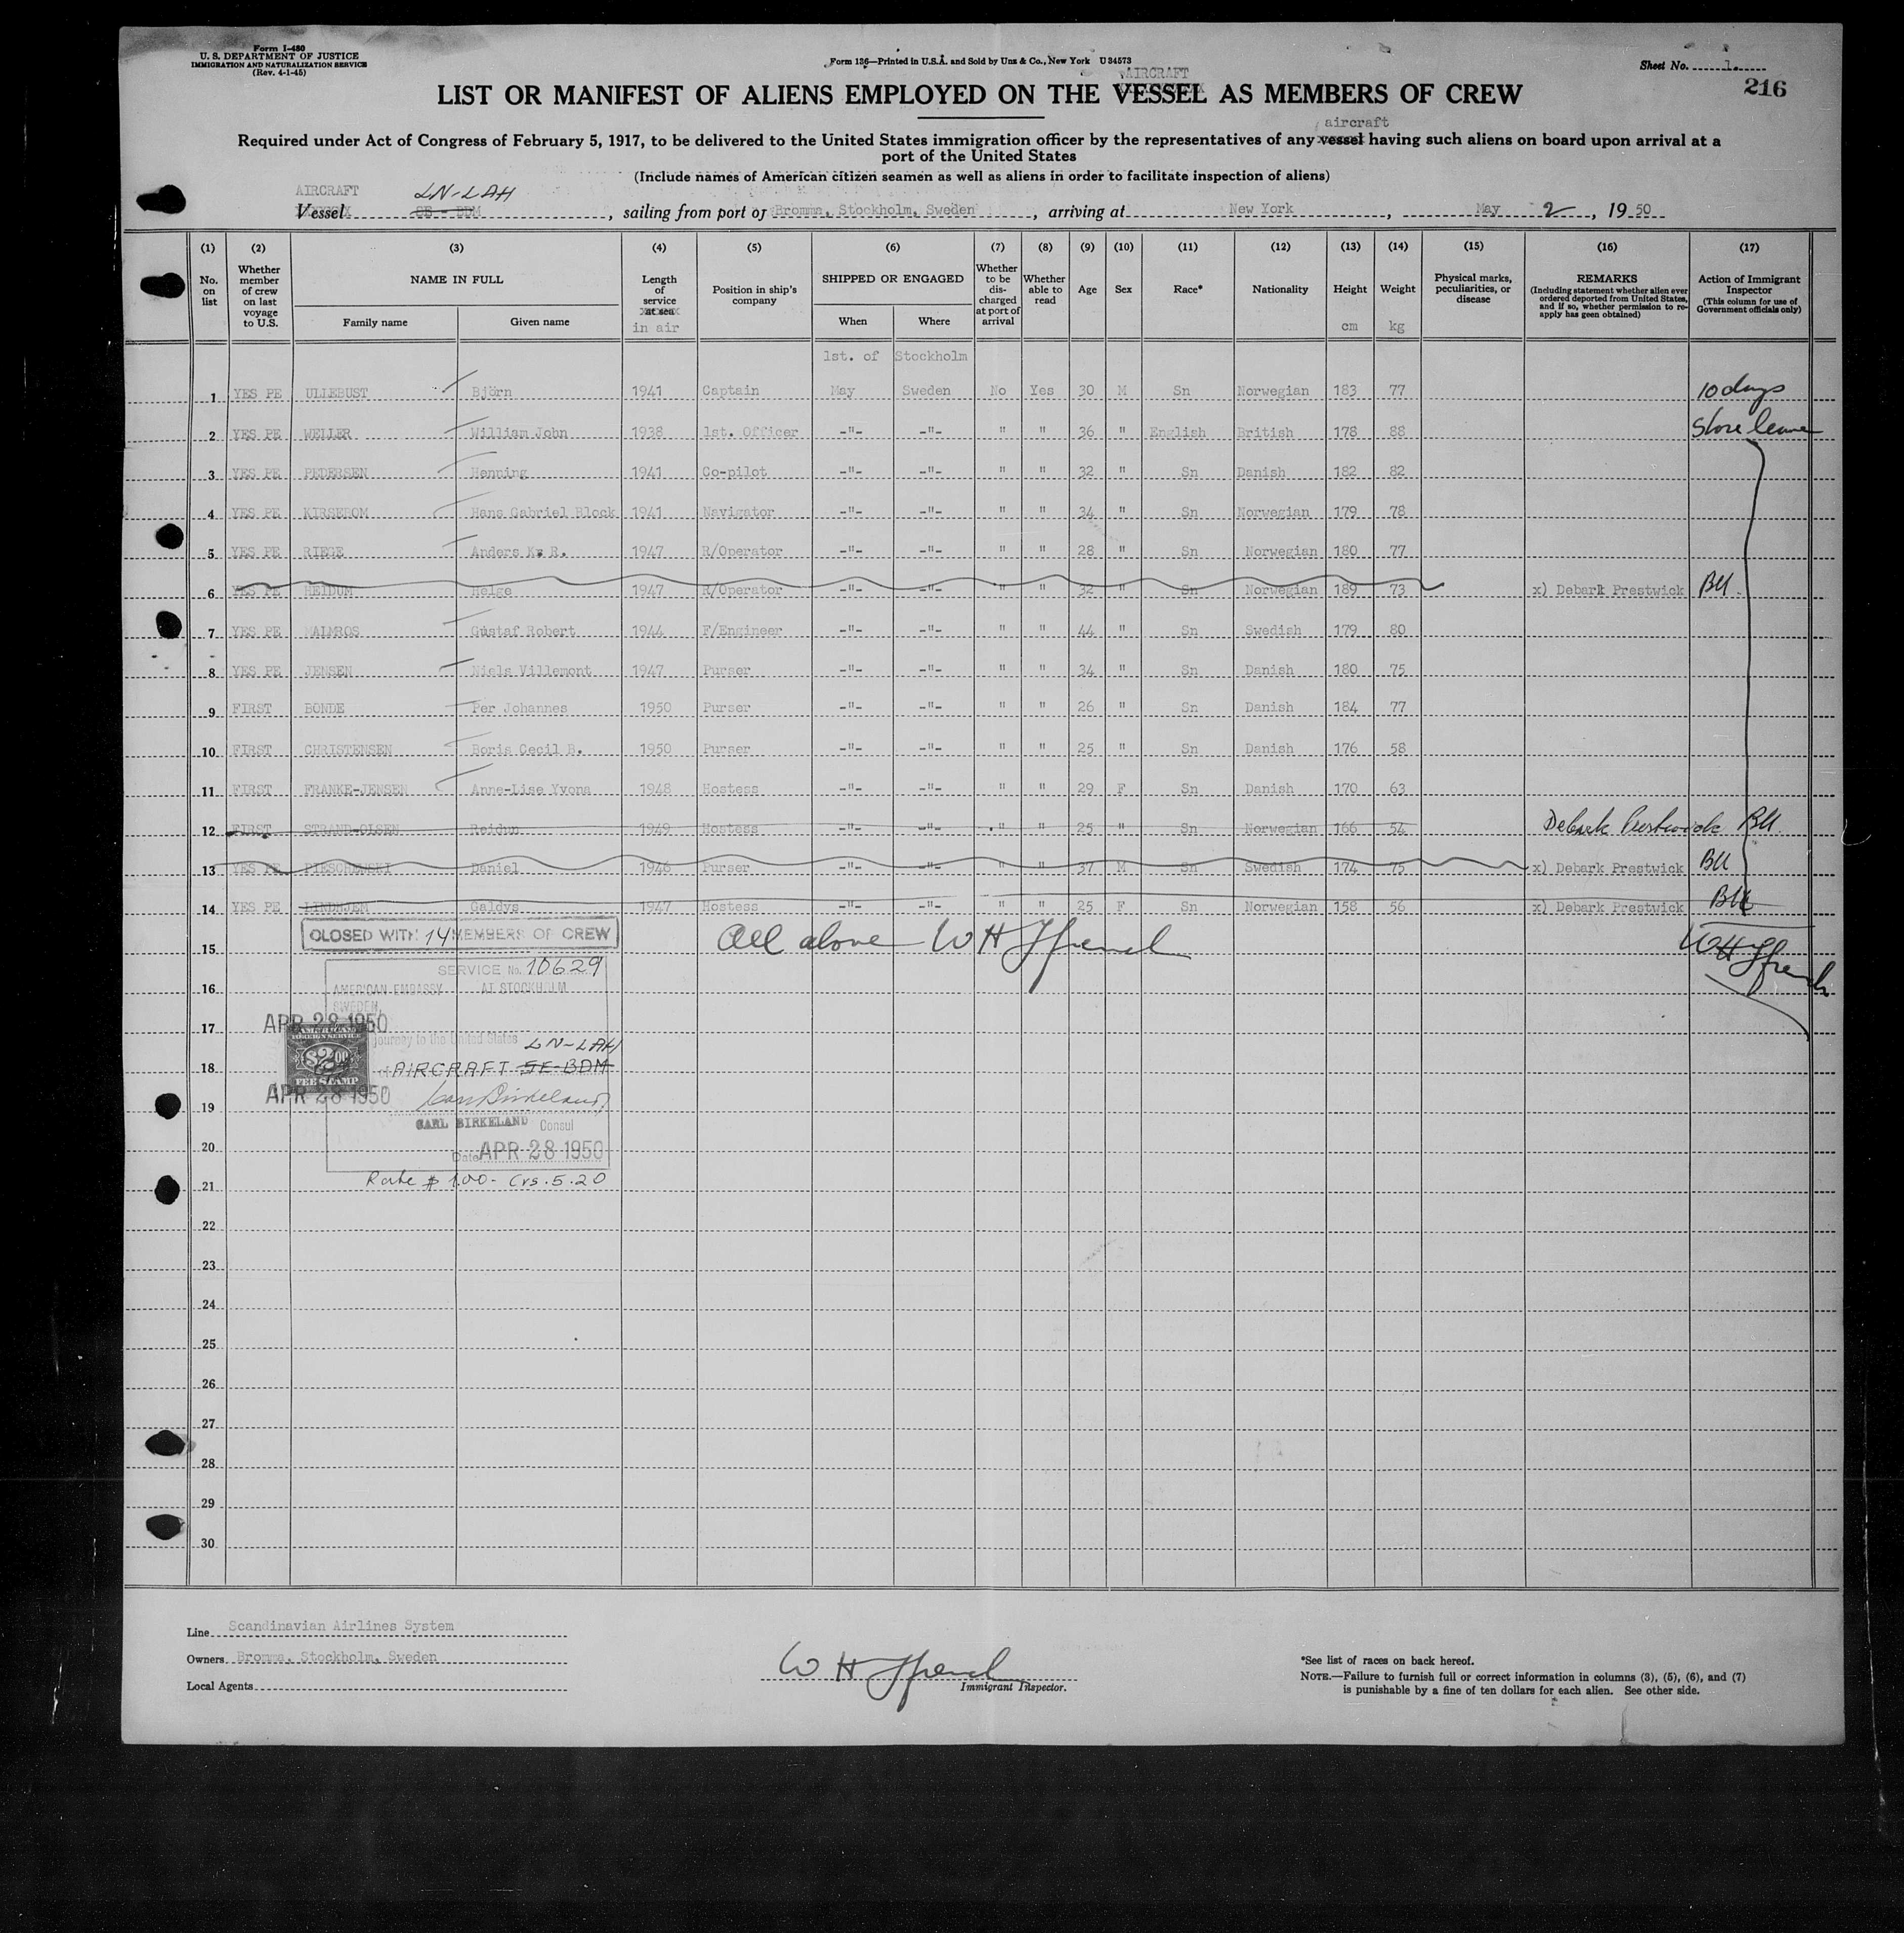 Form I-480
U. S. DEPARTMENT OF JUSTICE
IMMIGRATION AND NATURALIZATION SERVICE
(Rev. 4-1-45)
Form 136—Printed in U.S.A. and Sold by Unz & Co., New York U 34573
Sheet No. 1.
216
AIRCRAFT
LIST OR MANIFEST OF ALIENS EMPLOYED ON THE VESSEL AS MEMBERS OF CREW
aircraft
Required under Act of Congress of February 5, 1917, to be delivered to the United States immigration officer by the representatives of any vessel having such aliens on board upon arrival at a
port of the United States
(Include names of American citizen seamen as well as aliens in order to facilitate inspection of aliens)
AIRCRAFT LN-LAH
Vessel SE - BDM, sailing from port of Bromma, Stockholm, Sweden, arriving at New York, May 2, 1950
(1) (2) (3) (4) (5) (6) (7) (8) (9) (10) (11) (12) (13) (14) (15) (16) (17)
No. on list
Whether member of crew on last voyage to U.S.
NAME IN FULL
Family name
Given name
Length of service at sea
in air
Position in ship's company
SHIPPED OR ENGAGED
When
Where
Whether to be discharged at port of arrival
Whether able to read
Age
Sex
Race*
Nationality
Height
cm
Weight
kg
Physical marks, peculiarities, or disease
REMARKS
(Including statement whether alien ever ordered deported from United States, and if so, whether permission to re-apply has geen obtained)
Action of Immigrant Inspector
(This column for use of Government officials only)
1st. of Stockholm
1 YES PE ULLEBUST Björn 1941 Captain May Sweden No Yes 30 M Sn Norwegian 183 77 10 days
2 YES PE WELLER William John 1938 1st. Officer -"- -"- " " 36 " English British 178 88 Shore leave
3 YES PE PEDERSEN Henning 1941 Co-pilot -"- -"- " " 32 " Sn Danish 182 82
4 YES PE KIRSEBOM Hans Gabriel Block 1941 Navigator -"- -"- " " 34 " Sn Norwegian 179 78
5 YES PE RIEGE Anders Kr R. 1947 R/Operator -"- -"- " " 28 " Sn Norwegian 180 77
6 YES PE HEIDUM Helge 1947 R/Operator -"- -"- " " 32 " Sn Norwegian 189 73 x) Debark Prestwick BU
7 YES PE MALMROS Gustaf Robert 1944 F/Engineer -"- -"- " " 44 " Sn Swedish 179 80
8 YES PE JENSEN Niels Villemont 1947 Purser -"- -"- " " 34 " Sn Danish 180 75
9 FIRST BONDE Per Johannes 1950 Purser -"- -"- " " 26 " Sn Danish 184 77
10 FIRST CHRISTENSEN Boris Cecil B. 1950 Purser -"- -"- " " 25 " Sn Danish 176 58
11 FIRST FRANKE-JENSEN Anne-Lise Yvona 1948 Hostess -"- -"- " " 29 F Sn Danish 170 63
12 FIRST STRAND-OLSEN Reidun 1949 Hostess -"- -"- " " 25 " Sn Norwegian 166 54 Debark Prestwick BU
13 YES PE PIESCHEWSKI Daniel 1946 Purser -"- -"- " " 37 M Sn Swedish 174 75 x) Debark Prestwick BU
14 YES PE LINDHJEM Galdys 1947 Hostess -"- -"- " " 25 F Sn Norwegian 158 56 x) Debark Prestwick BU
CLOSED WITH 14 MEMBERS OF CREW
15 All above W H Ffrench
W H Ffrench
SERVICE No. 10629
16 AMERICAN EMBASSY AT STOCKHOLM
SWEDEN,
17 APR 28 1950
AMERICAN FOREIGN SERVICE
$2.00
FEE STAMP
journey to the United States
LN-LAH
18 AIRCRAFT SE-BDM
APR 28 1950
19 Carl Birkeland
CARL BIRKELAND Consul
20 Date APR 28 1950
21 Rate $ 1.00 - Crs. 5.20
22
23
24
25
26
27
28
29
30
Line Scandinavian Airlines System
Owners Bromma, Stockholm, Sweden
Local Agents
W H Ffrench
Immigrant Inspector.
*See list of races on back hereof.
NOTE.—Failure to furnish full or correct information in columns (3), (5), (6), and (7)
is punishable by a fine of ten dollars for each alien. See other side.